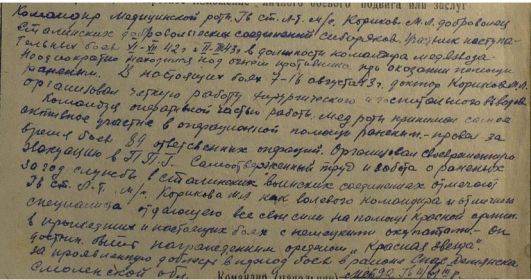 личного боевого подвига или заслуг
Командир Медицинской роты Гв. ст. л-т. м/с. Кориков М.Л. доброволец
Сталинских добровольческих соединений сибиряков. Участник наступа-
тельных боев XI-XII 42 г. и II-III 43 г. в должности командира мед. взвода.
Неоднократно находился под огнем противника при оказании помощи
раненым. В настоящих боях 7-16 августа 43 г. доктор Кориков М.Л.
организовал четкую работу хирургического и госпитального взводов.
Командуя оперативной частью работы мед роты принимал самое
активное участие в операционной помощи раненым.- провел за
время боев 89 ответственных операций. Организовал своевременную
эвакуацию в П.П.Г. Самоотверженный труд и забота о раненых
за год службы в Сталинских воинских соединениях отмечают
Гв ст. л-т. м/с. Корикова М.Л как волевого командира и отличного
специалиста отдающего все свои силы на помощь Красной армии.
в прошедших и настоящих боях с немецкими оккупантами.- он
достоин быть награжденным орденом "Красная звезда".
за проявленную доблесть в период боев в районе Спас-Деменска
Смоленской обл.
Командир